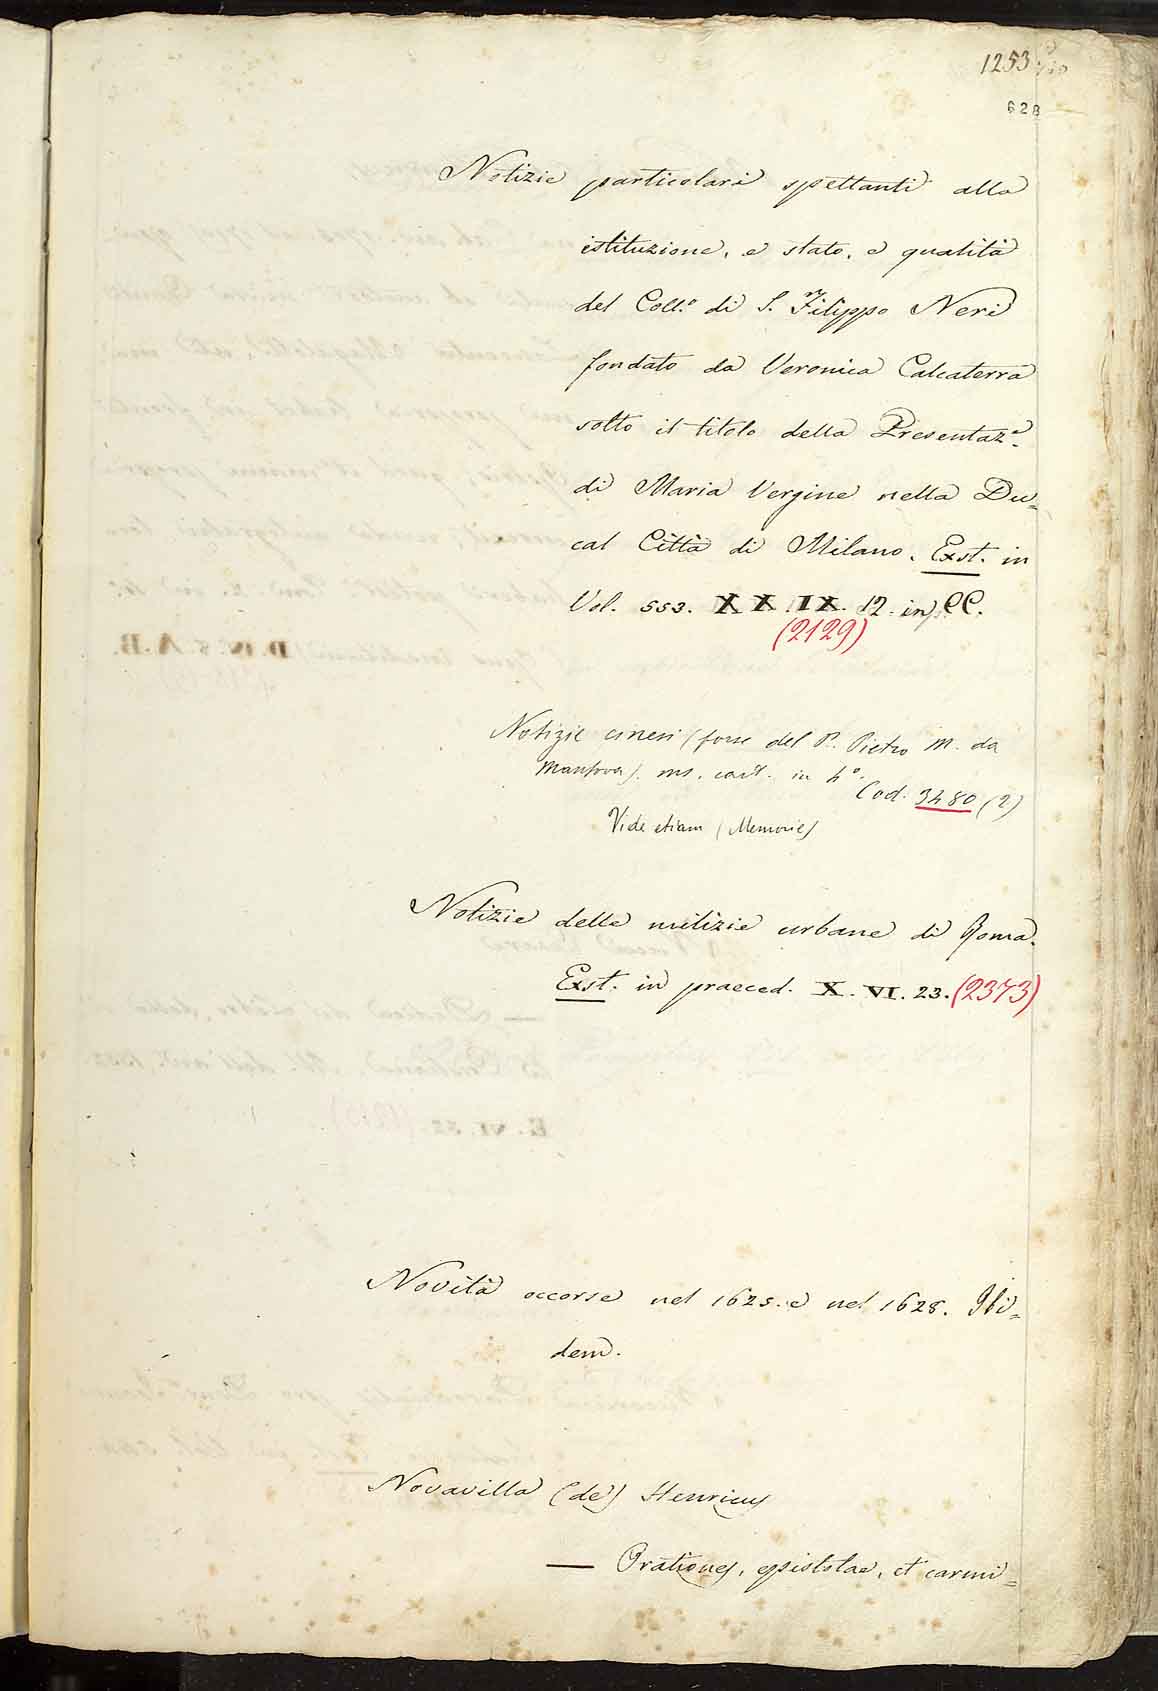 1253
628
Notizie particolari spettanti alla
istituzione, e stato, e qualità
del Coll.º di S. Filippo Neri
fondato da Veronica Calcaterra
sotto il titolo della Presentaz.e
di Maria Vergine nella Du=
cal Città di Milano. Exst. in
Vol. 553. XX. IX. 12. in
(2129)
Notizie cinesi (forse del P. Pietro M. da
Mantova). ms. cart. in 4º.
Cod. 3480 (2)
Vide etiam (Memorie)
Notizie delle milizie urbane di Roma.
Exst. in praeced. X. VI. 23. (2373)
Novità occorse nel 1625. e nel 1628. Ibi=
dem.
Novavilla (de) Henricus
— Orationes, epistolae, et carmi=